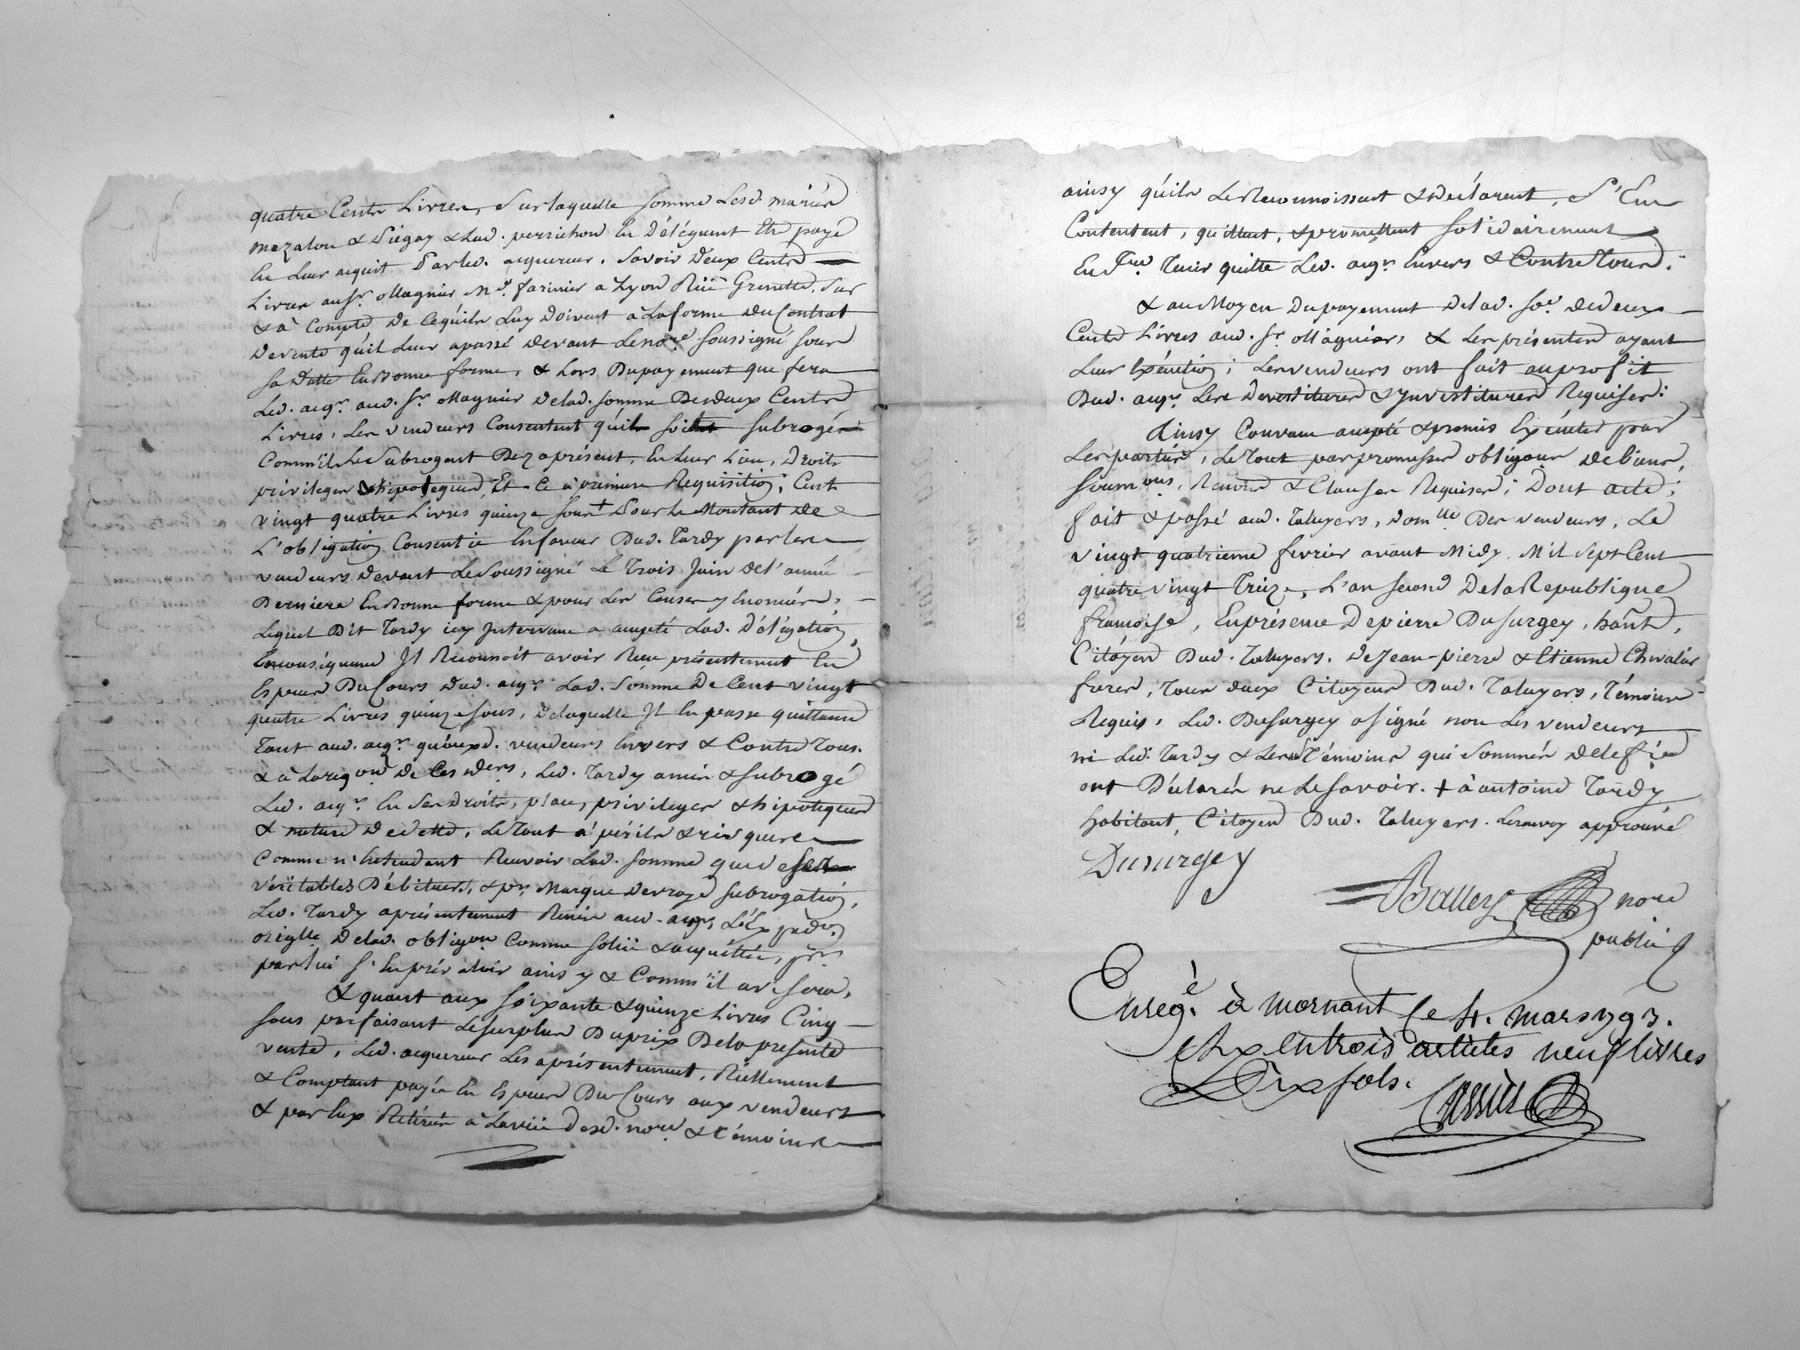 quatre Cents Livres, Surlaquelle somme Lesd. mariés
mazalon & Siegay & Lad. perrichon En Déléguent Etre payé
En Leur acquit Parled. acquereur. Savoir Deux Cents
Livres au Sr. Magnier Md. farinier a Lyon Rüe Grenette, Sur
& a Compte De Cequ'ils Luy Doivent a Laforme du Contrat
Devente qu'il Leur apassé devant Lenore. soussigné sous
sa Datte En Bonne forme, & Lors Dupayement que fera
Led. acqr. aud. Sr. Magnier Delad. somme De deux Cents
Livres, Les vendeurs Consentent qu'il soit subrogé
Comm'ils Le Subrogent Dez aprésent, En Leur Lieu, Droits
privileges & hipoteques, Et Ce a premiere Requisition; Cent
vingt quatre Livres quinze sous + Pour Le Montant de
L'obligation Consentie Enfaveur Dud. Tardy par les
vendeurs Devant Le Soussigné Le Trois Juin del'année
Derniere En Bonne forme & pour Les Causes y Enoncées,
Lequel Dit Tardy icy Intervenu a accepté Lad. Délégation,
Enconséquence Il Reconnoit avoir Reçu présentement En
Espèces Du Cours Dud. acqr. Lad. Somme De Cent vingt
quatre Livres quinze sous, Delaquelle Il En passe quittance
Tant aud. acqr. qu'auxd. vendeurs Envers & Contre Tous.
& a Laréqon. De Ces ders, Led. Tardy a mis & subrogé
Led. acqr. En Ses Droits, place, privileges & hipoteques
& nature De dette, Le Tout a périls & risques
Comme n'Entendant Recevoir Lad. Somme que de ses
véritables Débiteurs, & pr. Marque De vraye Subrogation,
Led. Tardy aprésentement Remis aud. acqr. L'Ex
origlle Delad. obligon. Comme Solüe & acquittée, pr.
par lui s'En prévaloir ainsy & Comm'il avisera.
& quant aux soixante & quinze Livres Cinq
sous parfaisant Le surplus Du prix De la presente
vente, Led. acquereur Les a présentement, Réellement
& Comptant payés En Espèces Du Cours aux vendeurs
& par Eux Retirés a La vüe Desd. nore & témoins
ainsy qu'ils Le Reconnoissent & Déclarent, S'En
Contentent, quittent, & promettent solidairement
En Faire Tenir quitte Led. acqr. Envers & Contre Tous.
& au Moyen Du payement Delad. Soe. de deux
Cents Livres aud. Sr. Magnier, & Les présentes ayant
Leur Exécution; Les vendeurs ont fait au profit
Dud. acqr. Les Devestitures & Investitures Requises.
Ainsy Convenu accepté & promis Exécuter par
Les parties, Le Tout par promesses obligaon de biens,
soumons, Renons & Clauses Requises; Dont acte;
fait & passé aud. Taluyers, domlle Des vendeurs, Le
vingt quatrieme fevrier avant Midy Mil Sept Cent
quatre vingt Treize, L'an second De la Republique
françoise, En présence De pierre Dusurgey, habit,
Citoyen Dud. Taluyers. De Jean-pierre & Etienne Chevalier
freres, Tous deux Citoyens Dud. Taluyers, Témoins
Requis, Led. Dusurgey a signé non Les vendeurs
ni Led. Tardy & Lesd. Témoins qui Sommés de le faire
ont Déclarés ne Le savoir. + a antoine Tardy
habitant, Citoyen Dud. Taluyers. Le renvoy approuvé
Dusurgey
Balley nore
public
Enregé. à Mornant Le 4. mars 1793.
En trois articles neuf livres
Dix sols.